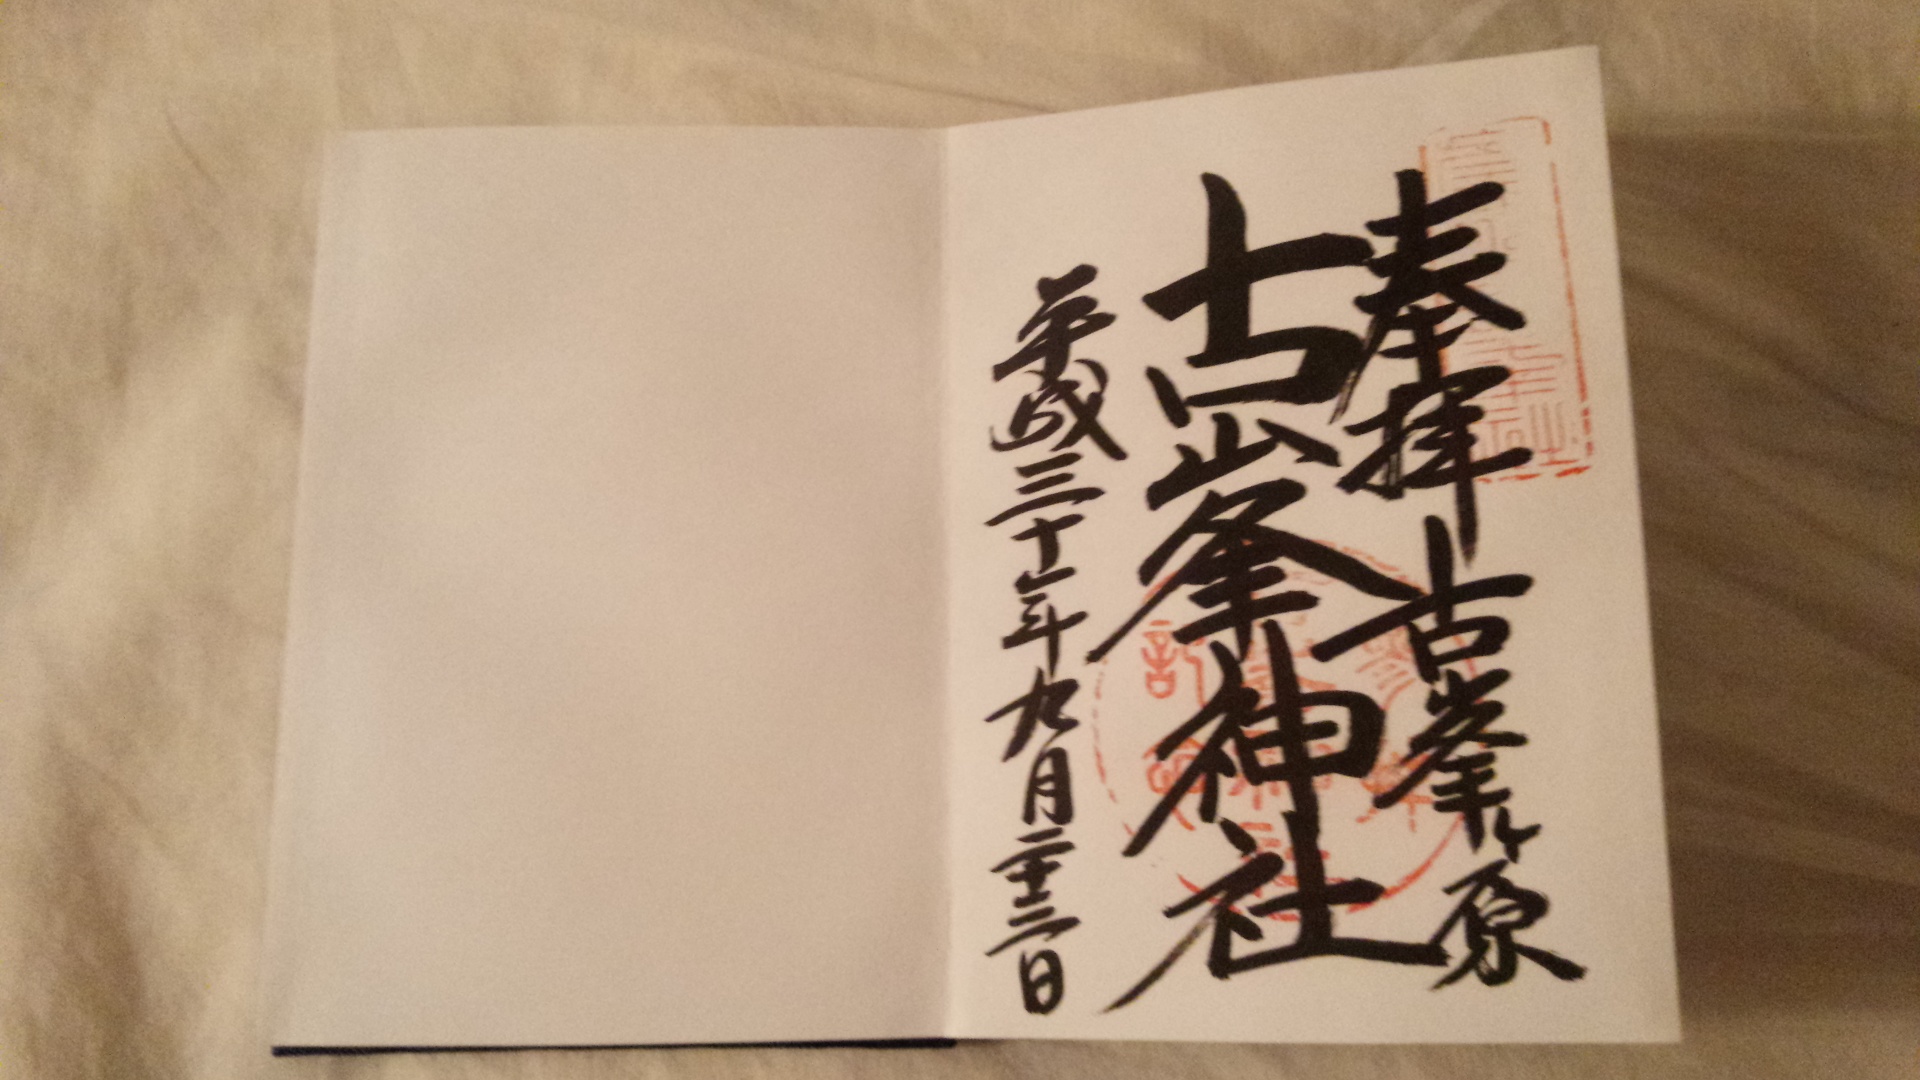 奉拝 古峯ヶ原
古峯神社
平成三十年九月二十三日